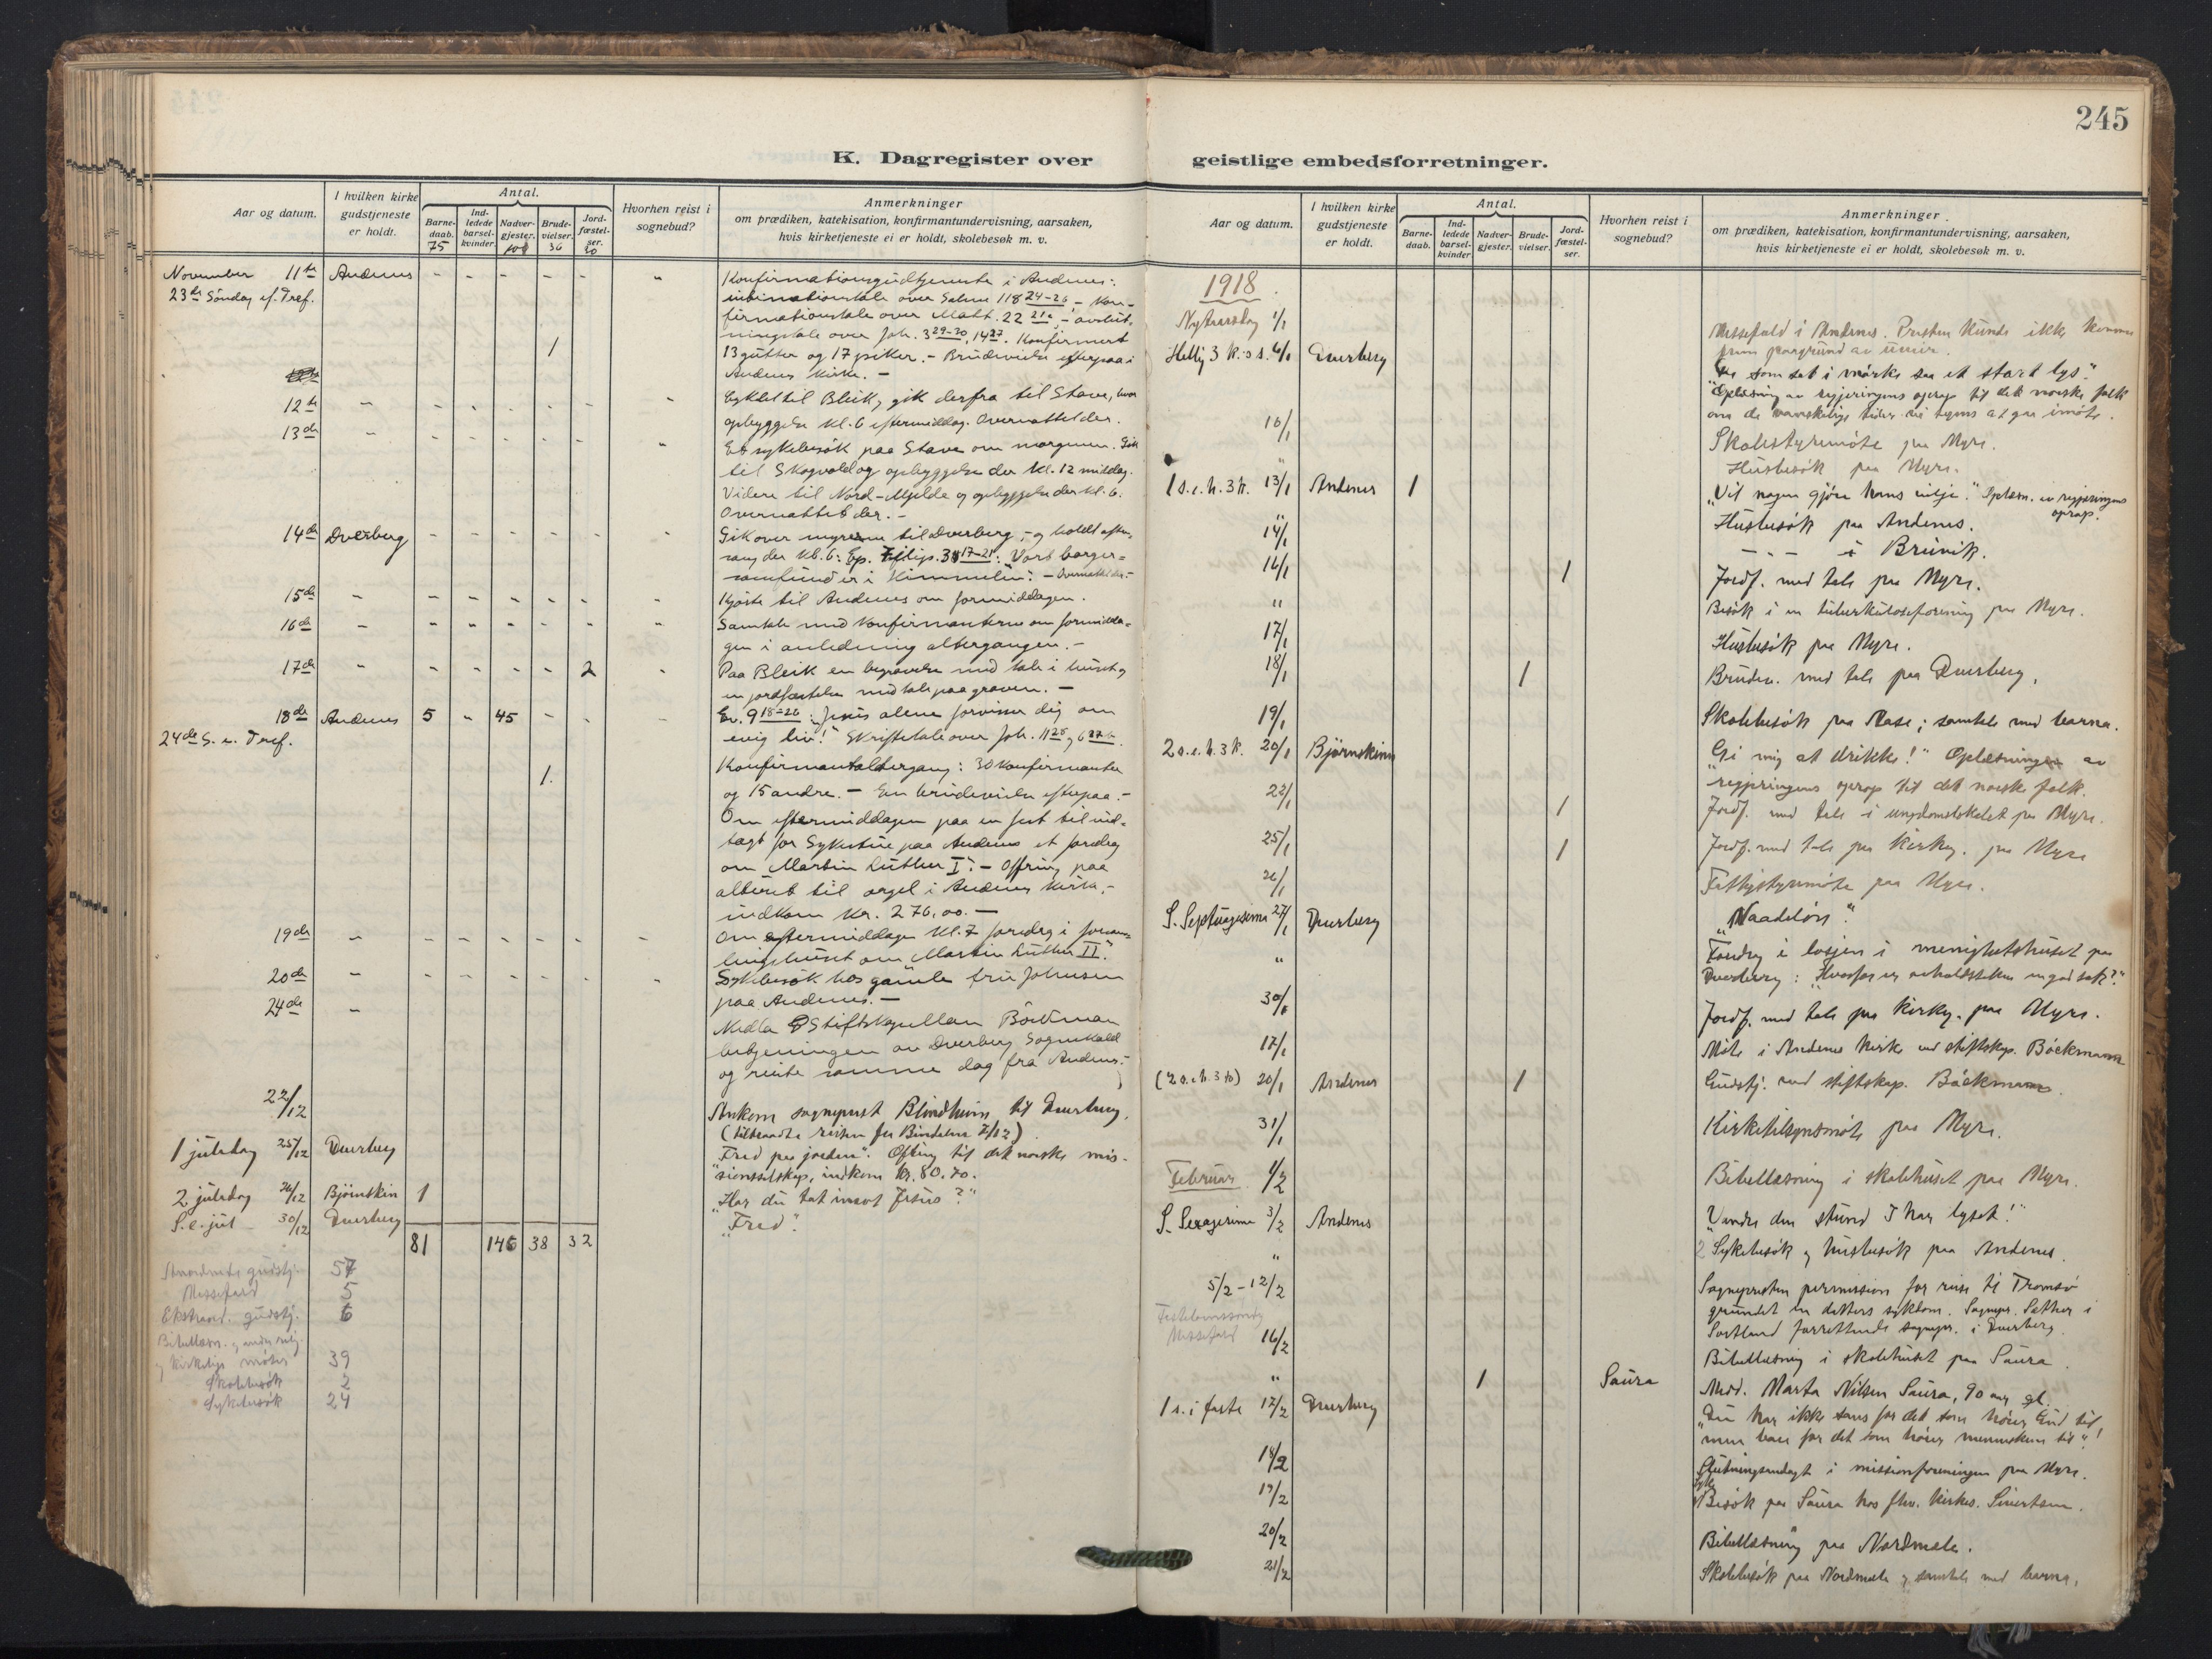 245
K. Dagregister over geistlige embedsforretninger.
Aar og datum.
I hvilken kirke gudstjeneste er holdt.
Antal.
Barne-daab. 75
Ind-ledede barsel-kvinder.
Nadver-gjester.
Brude-vielser. 36
Jord-fæstel-ser. 30
Hvorhen reist i sognebud?
Anmerkninger
om prædiken, katekisation, konfirmantundervisning, aarsaken,
hvis kirketjeneste ei er holdt, skolebesøk m. v.
November 11te Andenes - - - - - " Konfirmationsgudstjeneste i Andenes:
23de Söndag ef. Tref.
over Salme 118 24-26 - Kon-
firmationstale over Matt. 22 21 - avslut-
ningstale over Joh. 3 29-30, 14 27. Konfirmert
1 13 gutter og 17 piker. - Brudevielse efterpaa i
Andenes kirke. -
12te Cyklet til Bleik, gik derfra til Stave, hvor
opbyggelse kl. 6 eftermiddag. Overnattet der.
13de Et sykebesök paa Stave om morgenen. Gik
til Skogvold og opbyggelse der kl. 12 middag.
Videre til Nord-Mjelde og opbyggelse der kl. 6.
Overnattet der. -
14de Dverberg Gik over myrene til Dverberg, - og holdt aften-
sang der kl. 6: Ep. Filip. 3 17-21: Vort borger-
samfund er i Himmelen: - Overnattet der. -
15de Kjörte til Andenes om formiddagen.
16de Samtale med konfirmanterne om formidda-
gen i anledning altergangen. -
17de 2 Paa Bleik en begravelse med tale i huset og
en jordfæstelse med tale paa graven. -
18de Andenes 5 " 45 - - Ev. 9 18-26: "Jesus alene forvisser dig om
24de S. e. Tref. evig liv!" Skriftetale over Joh. 11 28, 6 37 b.
1. Konfirmantaltergang: 30 konfirmanter
og 15 andre. - En brudevielse efterpaa. -
Om eftermiddagen paa en fest til ind-
tægt for Sykestue paa Andenes et foredrag
om "Martin Luther I". - Offring paa
alteret til orgel i Andenes kirke, -
indkom kr. 276,00. -
19de Om eftermiddagen kl. 7 foredrag i forsam-
lingshuset om "Martin Luther II".
20de Sykebesök hos gamle fru Johnsen
paa Andenes. -
24de Nedla Stiftskapellan Böckman
betjeningen av Dverberg Sognekald
og reiste samme dag fra Andenes. -
22/12 Ankom sogneprest Blindheim til Dverberg.
(tiltraadte reisen fra Bindalen 7/12)
1 juledag 25/12 Dverberg "Fred paa jorden". Ofring til det norske mis-
sionsselskap, indkom kr. 80.70.
2 juledag 26/12 Björnskin 1 "Har du tat imot Jesus?"
S. e. jul 30/12 Dverberg "Fred".
81 146 38 32
Anordnede gudstj. 57
Messefald 5
Ekstraord. gudstj. 6
Bibellæsn. og andre relig.
og kirkelige möter 39
Skolebesök 2
Sykebesök 24
Aar og datum.
I hvilken kirke gudstjeneste er holdt.
Antal.
Barne-daab.
Ind-ledede barsel-kvinder
Nadver-gjester.
Brude-vielser.
Jord-fæstel-ser.
Hvorhen reist i sognebud?
Anmerkninger.
om prædiken, katekisation, konfirmantundervisning, aarsaken,
hvis kirketjeneste ei er holdt, skolebesøk m. v.
1918.
Nytaarsdag 1/1 Messefald i Andenes. Presten kunde ikke komme
frem paagrund av uveir.
Hellig 3 k. s. 6/1 Dverberg "De som sat i mörke saa et stort lys."
Oplæsning av regjeringens oprop til det norske folk
om de vanskelige tider vi synes at gaa imöte.
10/1 Skolestyremöte paa Myre.
" Husbesök paa Myre.
1 s. e. h. 3 k. 13/1 Andenes 1 "Vil nogen gjöre hans vilje." Oplæsn. av regjeringens
oprop.
" Husbesök paa Andenes.
14/1 - - - i Bruvik.
16/1 1 Jordf. med tale paa Myre.
" Besök i en tuberkuloseforening paa Myre.
17/1 Husbesök paa Myre.
18/1 1 Brudev. med tale paa Dverberg.
19/1 Skolebesök paa Aase; samtale med barna.
2 s. e. h. 3 k. 20/1 Björnskinn "Gi mig at drikke!" Oplæsningen av
regjeringens oprop til det norske folk.
22/1 1 Jordf. med tale i ungdomslokalet paa Myre.
25/1 1 Jordf. med tale paa kirkeg. paa Myre
26/1 Fattigstyremöte paa Myre.
S. Septuagesima 27/1 Dverberg "Naadelön".
" Foredrag i losjen i menighetshuset paa
Dverberg: "Hvorfor er avholdssaken en god sak?"
30/1 Jordf. med tale paa kirkeg. paa Myre.
17/1 Möte i Andenes kirke ved stiftskap. Böckmann
(2 s. e. h. 3 k) 20/1 Andenes 1 Gudstj. ved stiftskap. Böckmann.
31/1 Kirketilsynsmöte paa Myre.
Februar 1/2 Bibellæsning i skolehuset paa Myre.
S. Sexagesima 3/2 Andenes "Vandre den stund I har lyset!"
" 2 Sykebesök og husbesök paa Andenes.
5/2 - 12/2 Sognepresten permission for reise til Tromsö
grundet en datters sykdom. Sognepr. Sæther i
Sortland forrettende sognepr. i Dverberg.
Fastelavnssöndag
Messefald
16/2 Bibellæsning i skolehuset paa Saura.
" 1 Saura Medd. Marta Nilsen Saura, 90 aar gl.
1 s. i faste 17/2 Dverberg "Du har ikke sans for det som hörer Gud til,
men bare for det som hörer menneskene til"!
18/2 Slutningsandagt i missionsforeningen paa Myre.
19/2 Syke Besök paa Saura hos fhv. kirkes. Sivertsen.
20/2 Bibellæsning paa Nordmela.
21/2 Skolebesök paa Nordmela og samtale med barna.